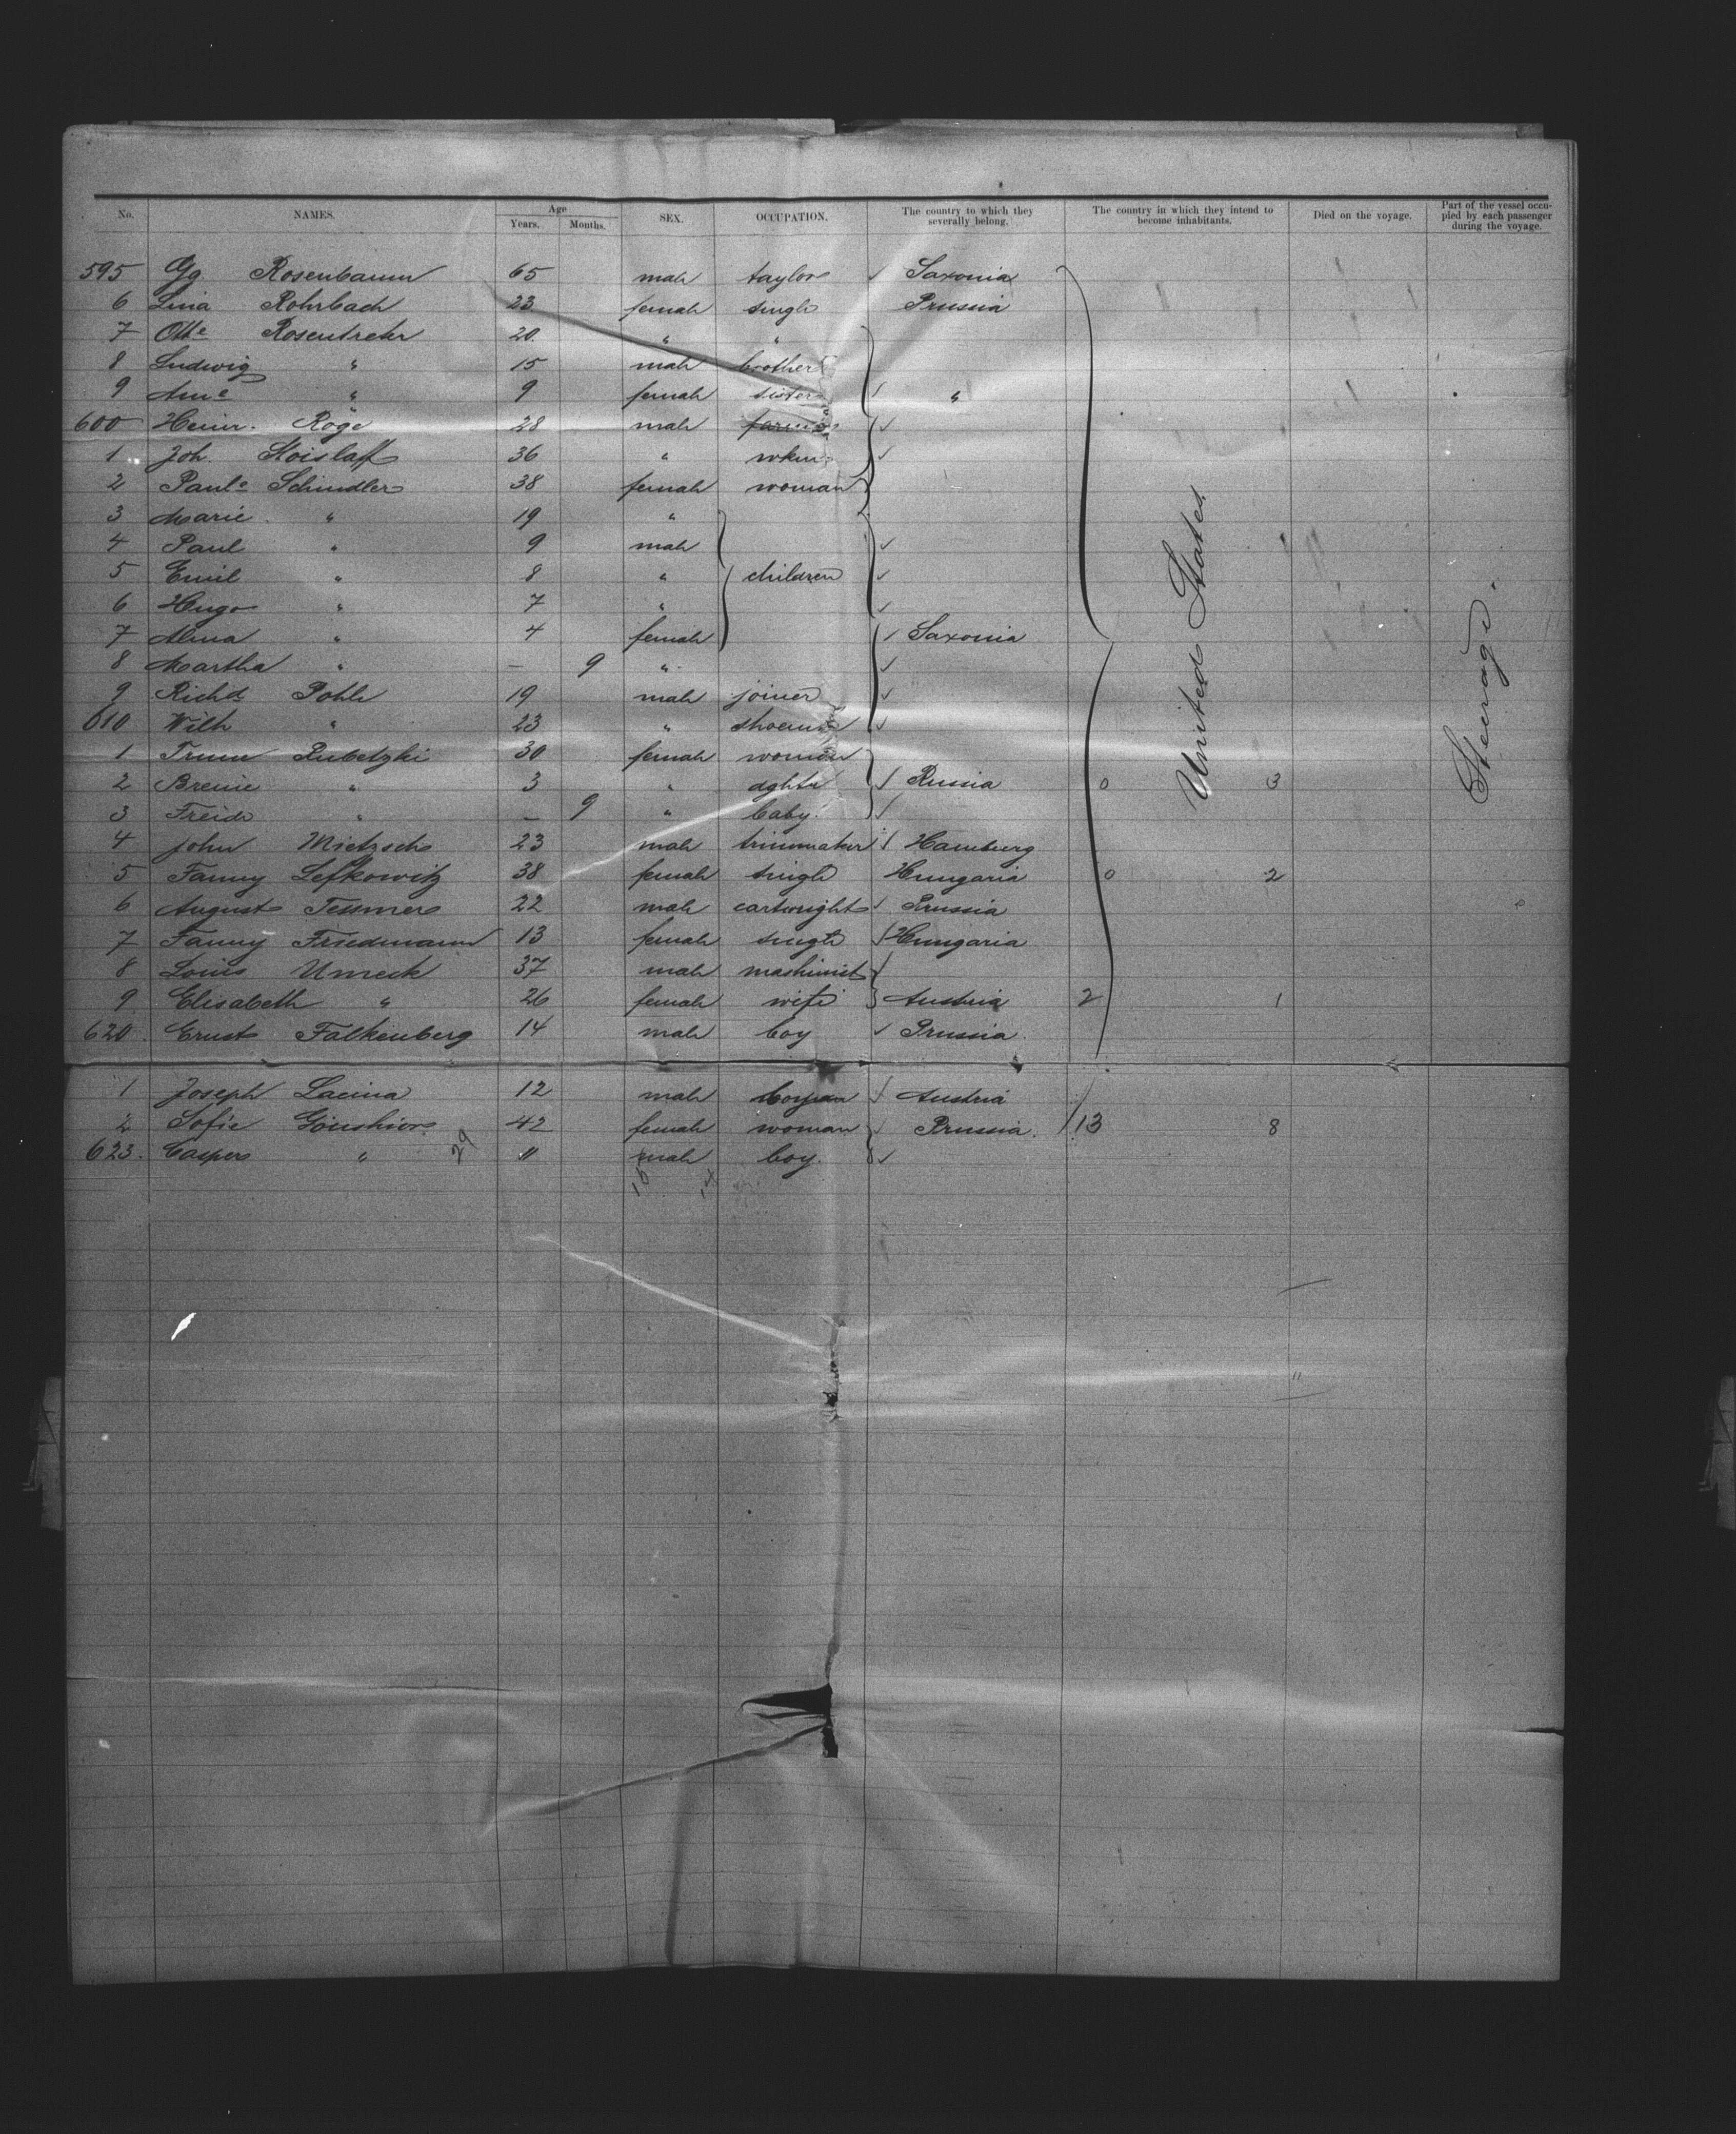 No. NAMES. Age Years. Months. SEX. OCCUPATION. The country to which they severally belong. The country in which they intend to become inhabitants. Died on the voyage. Part of the vessel occupied by each passenger during the voyage.
595 Gg Rosenbaum 65 male taylor Saxonia
6 Lina Rohrbach 23 female single Prussia
7 Otte Rosentreter 20 " "
8 Ludwig " 15 male brother
9 Ame " 9 female sister "
600 Heinr. Röge 28 male
1 Joh. Stoislaff 36 "
2 Paule Schindler 38 female woman
3 Marie " 19 "
4 Paul " 9 male
5 Emil " 8 " children
6 Hugo " 7 "
7 Alma " 4 female Saxonia
8 Martha " — 9 "
9 Richd Pohle 19 male joiner
610 Wilh " 23 "
1 Rubetzki 30 female woman
2 Breine " 3 " dghtr Russia 0 3
3 Freide " — 9 " baby
4 John Mietzsch 23 male Hamburg
5 Fanny Lefkowitz 38 female single Hungaria 0 2
6 August Tessmer 22 male cartwright Prussia
7 Fanny Friedmann 13 female single Hungaria
8 Louis Umeck 37 male mashinist
9 Elisabeth " 26 female wife Austria 2 1
620. Ernst Falkenberg 14 male boy Prussia
1 Joseph Lacina 12 male Austria
2 Sofie 42 female woman Prussia. 13 8
623. Casper " 29 11 male boy.
United States
Steerage.